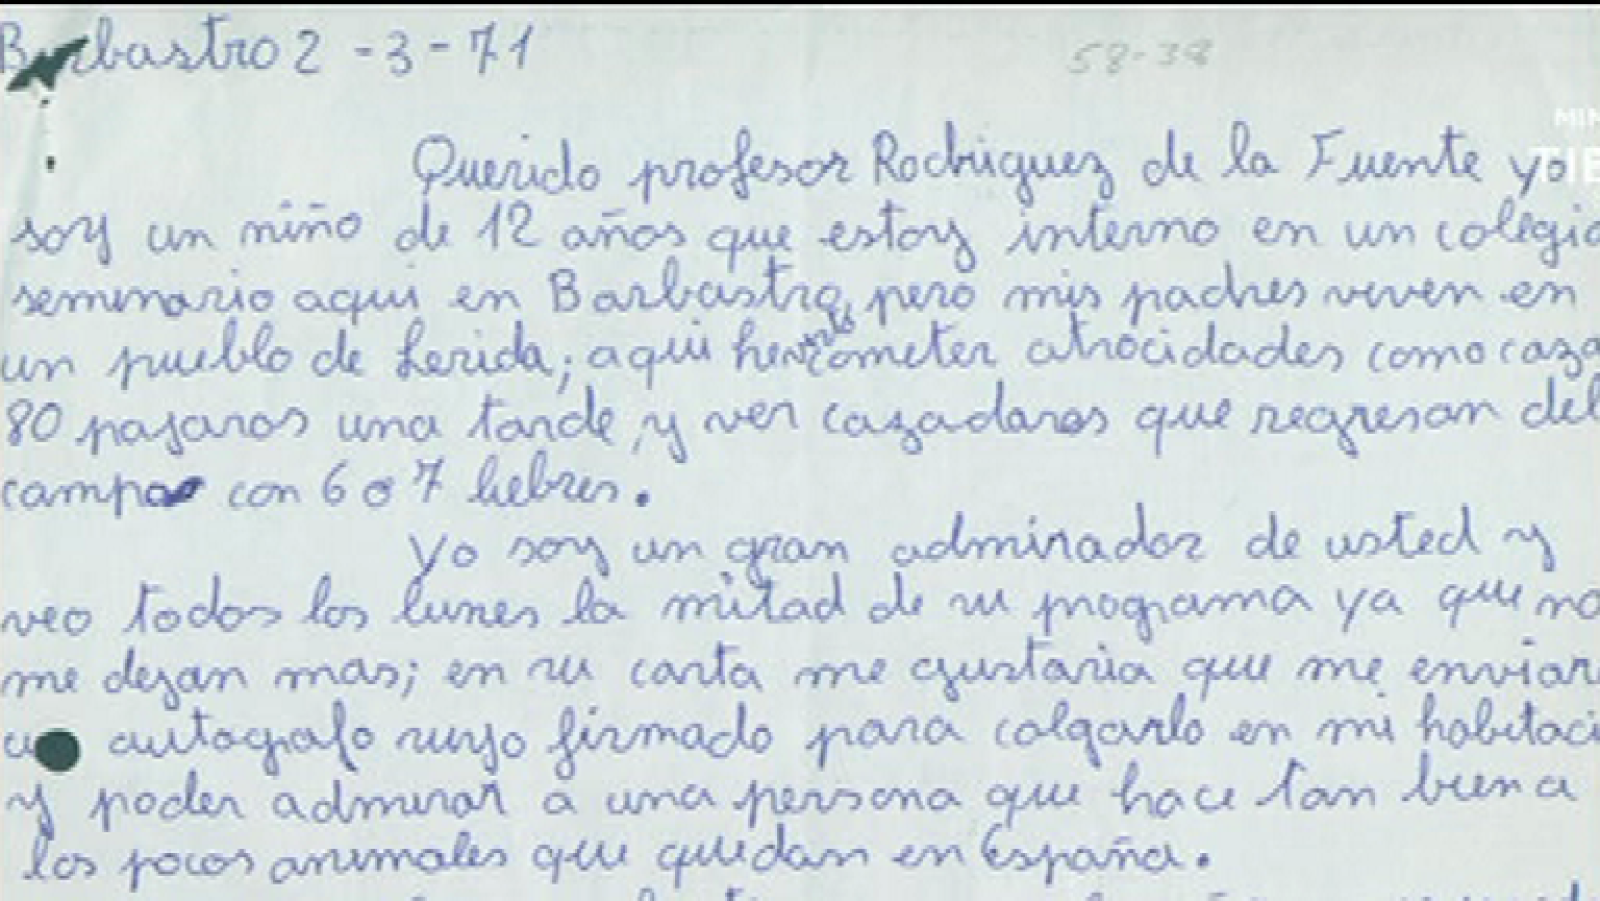 Barbastro 2 - 3 - 71
58-38
MIN
TIE
Querido profesor Rodriguez de la Fuente yo
soy un niño de 12 años que estoy interno en un colegio
seminario aqui en Barbastro, pero mis padres viven en
un pueblo de Lerida; aqui he visto cometer atrocidades como caza
80 pajaros una tarde, y ver cazadores que regresan del
campo con 6 o 7 liebres.
Yo soy un gran admirador de usted y
veo todos los lunes la mitad de su programa ya que no
me dejan mas; en su carta me gustaria que me enviara
autografo suyo firmado para colgarlo en mi habitaci
y poder admirar a una persona que hace tan bien a
los pocos animales que quedan en España.